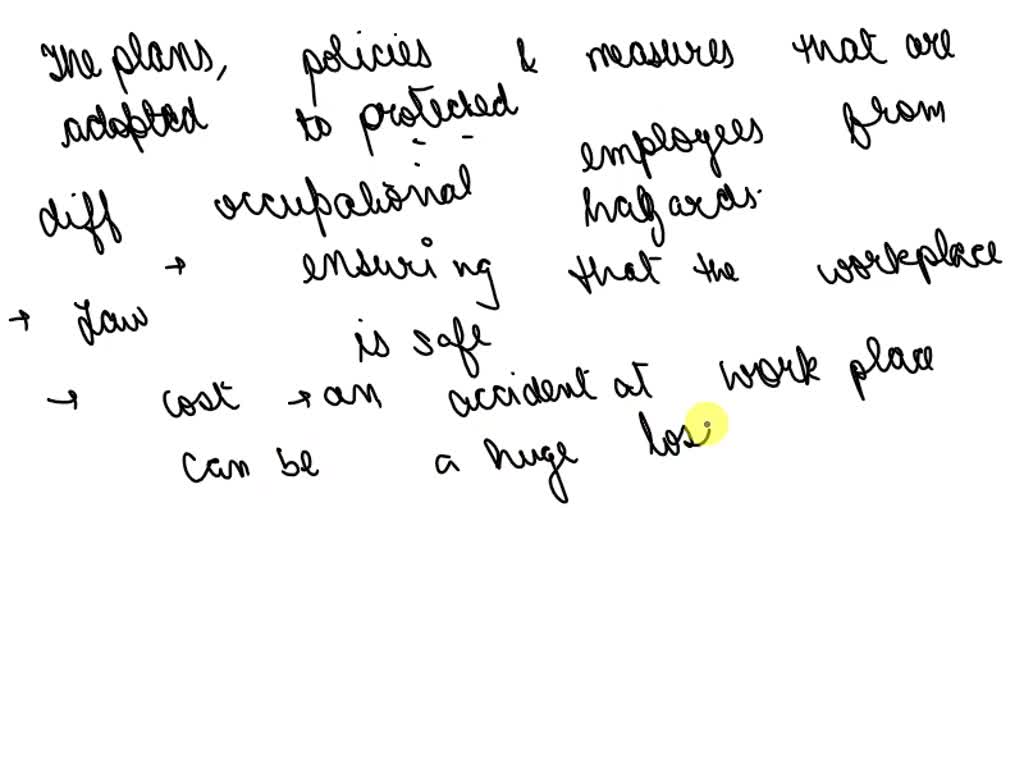 The plans, policies & measures that are
adopted to protected employees from
diff occupational hazards.
→ ensuring that the workplace
→ Law is safe
→ cost → an accident at work place
can be a huge los